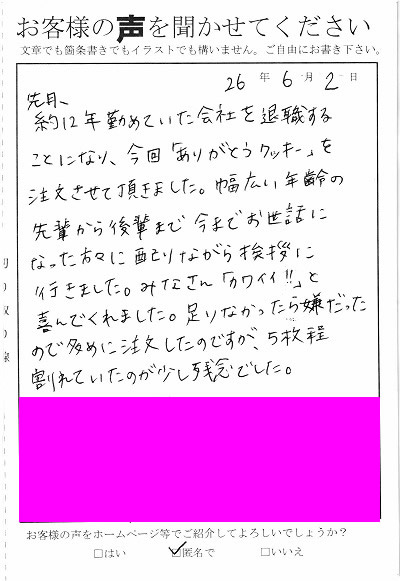 お客様の声を聞かせてください
文章でも箇条書きでもイラストでも構いません。ご自由にお書き下さい。
26年6月2日
先月、
約12年勤めていた会社を退職する
ことになり、今回「ありがとうクッキー」を
注文させて頂きました。幅広い年齢の
先輩から後輩まで今までお世話に
なった方々に配りながら挨拶に
行きました。みなさん「カワイイ!!」と
喜んでくれました。足りなかったら嫌だった
ので多めに注文したのですが、5枚程
割れていたのが少し残念でした。
お客様の声をホームページ等でご紹介してよろしいでしょうか？
□はい ☑匿名で □いいえ